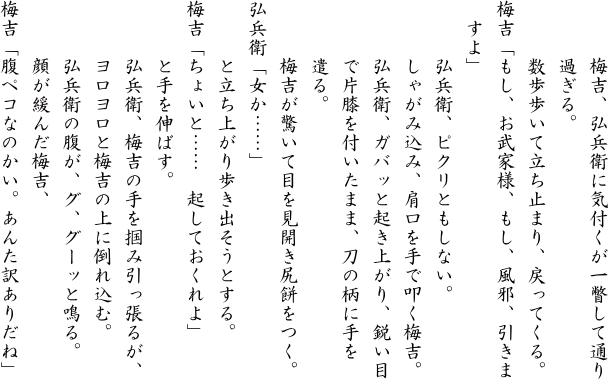 梅吉、弘兵衛に気付くが一瞥して通り
過ぎる。
数歩歩いて立ち止まり、戻ってくる。
梅吉「もし、お武家様、もし、風邪、引きま
すよ」
弘兵衛、ピクリともしない。
しゃがみ込み、肩口を手で叩く梅吉。
弘兵衛、ガバッと起き上がり、鋭い目
で片膝を付いたまま、刀の柄に手を
遣る。
梅吉が驚いて目を見開き尻餅をつく。
弘兵衛「女か……」
と立ち上がり歩き出そうとする。
梅吉「ちょいと……　起しておくれよ」
と手を伸ばす。
弘兵衛、梅吉の手を掴み引っ張るが、
ヨロヨロと梅吉の上に倒れ込む。
弘兵衛の腹が、グ、グーッと鳴る。
顔が緩んだ梅吉、
梅吉「腹ペコなのかい。あんた訳ありだね」